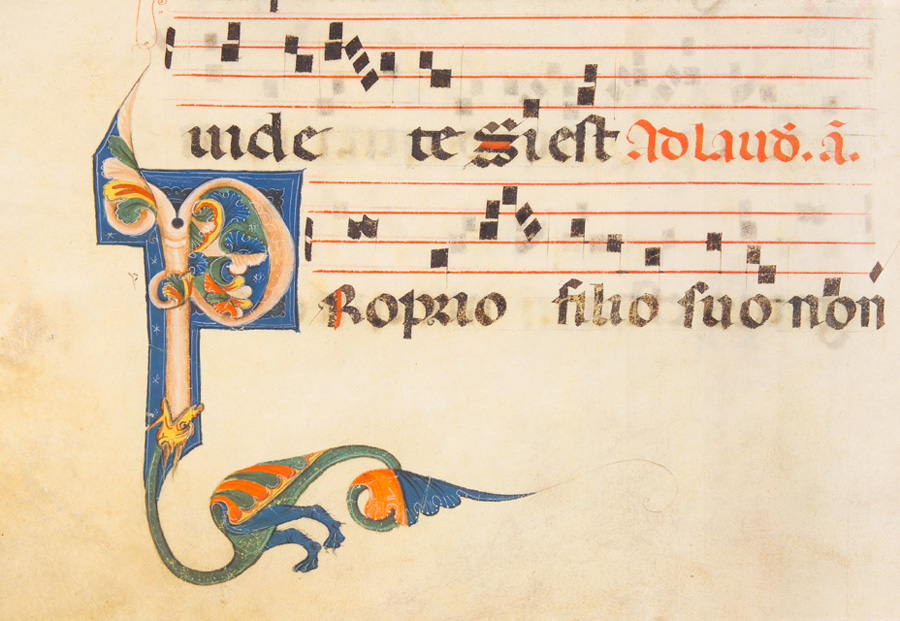 uide te Si est Ad laud̄. ā.
PRoprio filio suo non